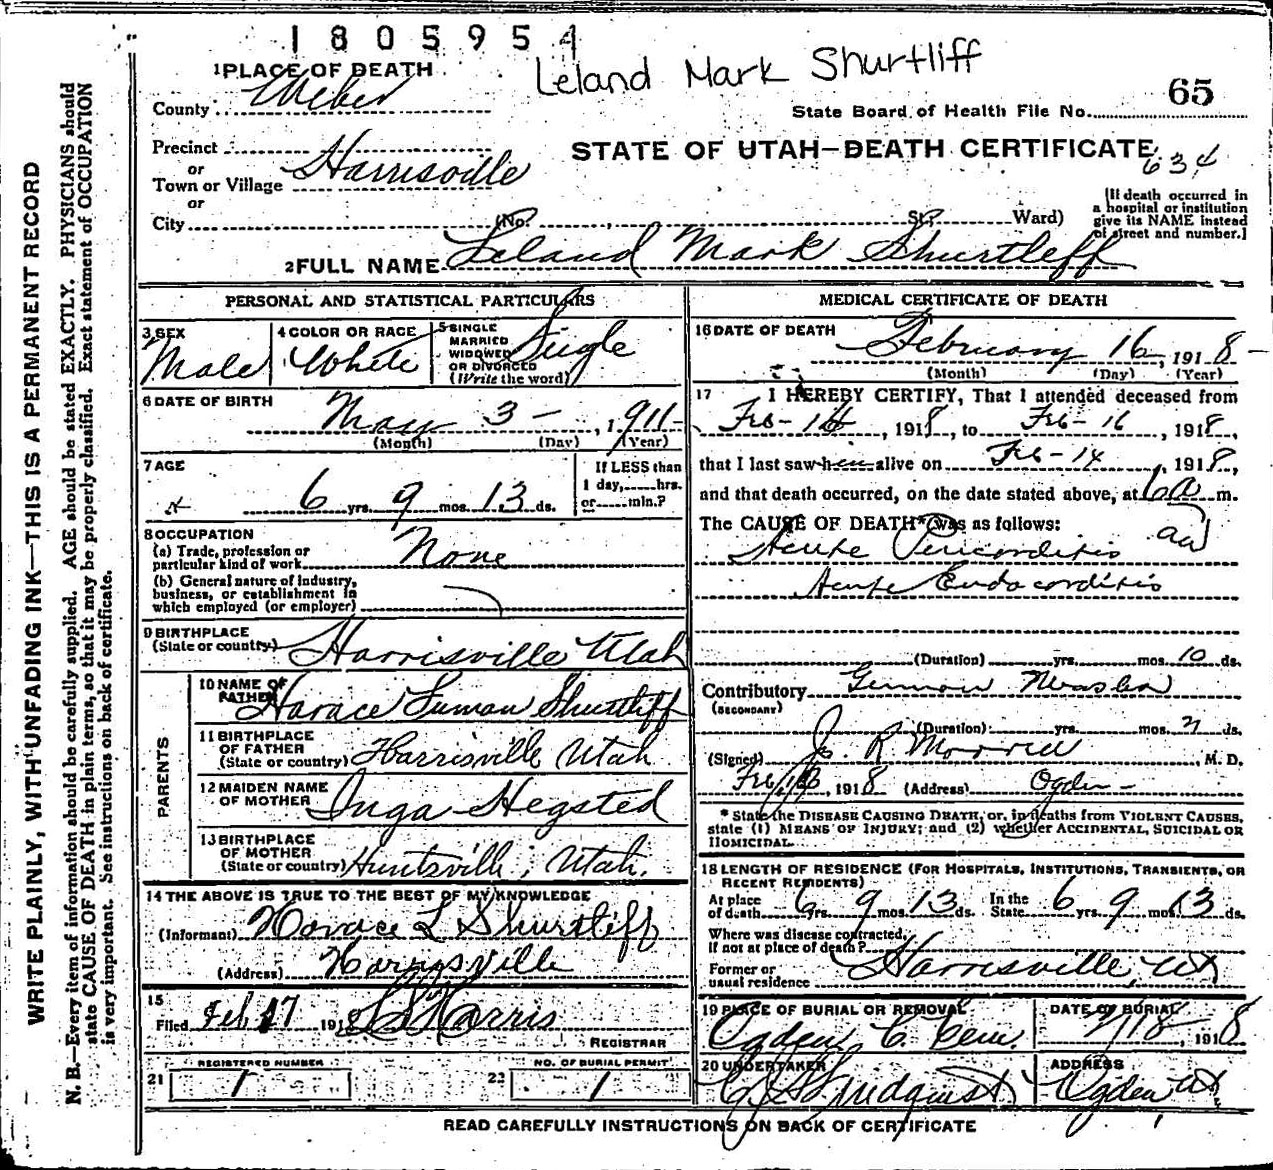 1805954
Leland Mark Shurtliff
1 PLACE OF DEATH
County Weber
State Board of Health File No. 65
Precinct
or
Town or Village Harrisville
or
City (No. , St. Ward)
STATE OF UTAH—DEATH CERTIFICATE
634
[If death occurred in
a hospital or institution
give its NAME instead
of street and number.]
2 FULL NAME Leland Mark Shurtleff
PERSONAL AND STATISTICAL PARTICULARS
3 SEX
Male
4 COLOR OR RACE
White
5 SINGLE
MARRIED
WIDOWED
OR DIVORCED
(Write the word)
Single
6 DATE OF BIRTH
May 3 – , 1911
(Month) (Day) (Year)
7 AGE
6 yrs. 9 mos. 13 ds.
If LESS than
1 day, hrs.
or min.?
8 OCCUPATION
(a) Trade, profession or
particular kind of work None
(b) General nature of industry,
business, or establishment in
which employed (or employer)
9 BIRTHPLACE
(State or country) Harrisville Utah
PARENTS
10 NAME OF
FATHER Horace Luman Shurtliff
11 BIRTHPLACE
OF FATHER
(State or country) Harrisville Utah
12 MAIDEN NAME
OF MOTHER Inga Hegsted
13 BIRTHPLACE
OF MOTHER
(State or country) Huntsville, Utah.
14 THE ABOVE IS TRUE TO THE BEST OF MY KNOWLEDGE
(Informant) Horace L Shurtliff
(Address) Harrisville
15
Filed Feb 17 191 Harris
REGISTRAR
REGISTERED NUMBER
21 1
NO. OF BURIAL PERMIT
22 1
MEDICAL CERTIFICATE OF DEATH
16 DATE OF DEATH
February 16, 1918
(Month) (Day) (Year)
17 I HEREBY CERTIFY, That I attended deceased from
Feb-14, 1918, to Feb-16, 1918,
that I last saw her alive on Feb-14, 1918,
and that death occurred, on the date stated above, at 6a m.
The CAUSE OF DEATH* was as follows:
Acute Pericarditis
Acute Endocarditis
(Duration) yrs. mos. 10 ds.
Contributory German Measles
(SECONDARY)
(Duration) yrs. mos. ds.
(Signed) R Morrell, M. D.
Feb, 1918 (Address) Ogden –
* State the DISEASE CAUSING DEATH, or, in deaths from VIOLENT CAUSES,
state (1) MEANS OF INJURY; and (2) whether ACCIDENTAL, SUICIDAL OR
HOMICIDAL.
18 LENGTH OF RESIDENCE (FOR HOSPITALS, INSTITUTIONS, TRANSIENTS, OR
RECENT RESIDENTS)
At place
of death 6 yrs. 9 mos. 13 ds. In the
State 6 yrs. 9 mos. 13 ds.
Where was disease contracted,
if not at place of death?
Former or
usual residence Harrisville, Ut
19 PLACE OF BURIAL OR REMOVAL
Ogden C. Cem.
DATE OF BURIAL
2/18, 1918
20 UNDERTAKER
Lindquist
ADDRESS
Ogden, Ut,
READ CAREFULLY INSTRUCTIONS ON BACK OF CERTIFICATE
WRITE PLAINLY, WITH UNFADING INK—THIS IS A PERMANENT RECORD
N. B.—Every item of information should be carefully supplied. AGE should be stated EXACTLY. PHYSICIANS should
state CAUSE OF DEATH in plain terms, so that it may be properly classified. Exact statement of OCCUPATION
is very important. See instructions on back of certificate.